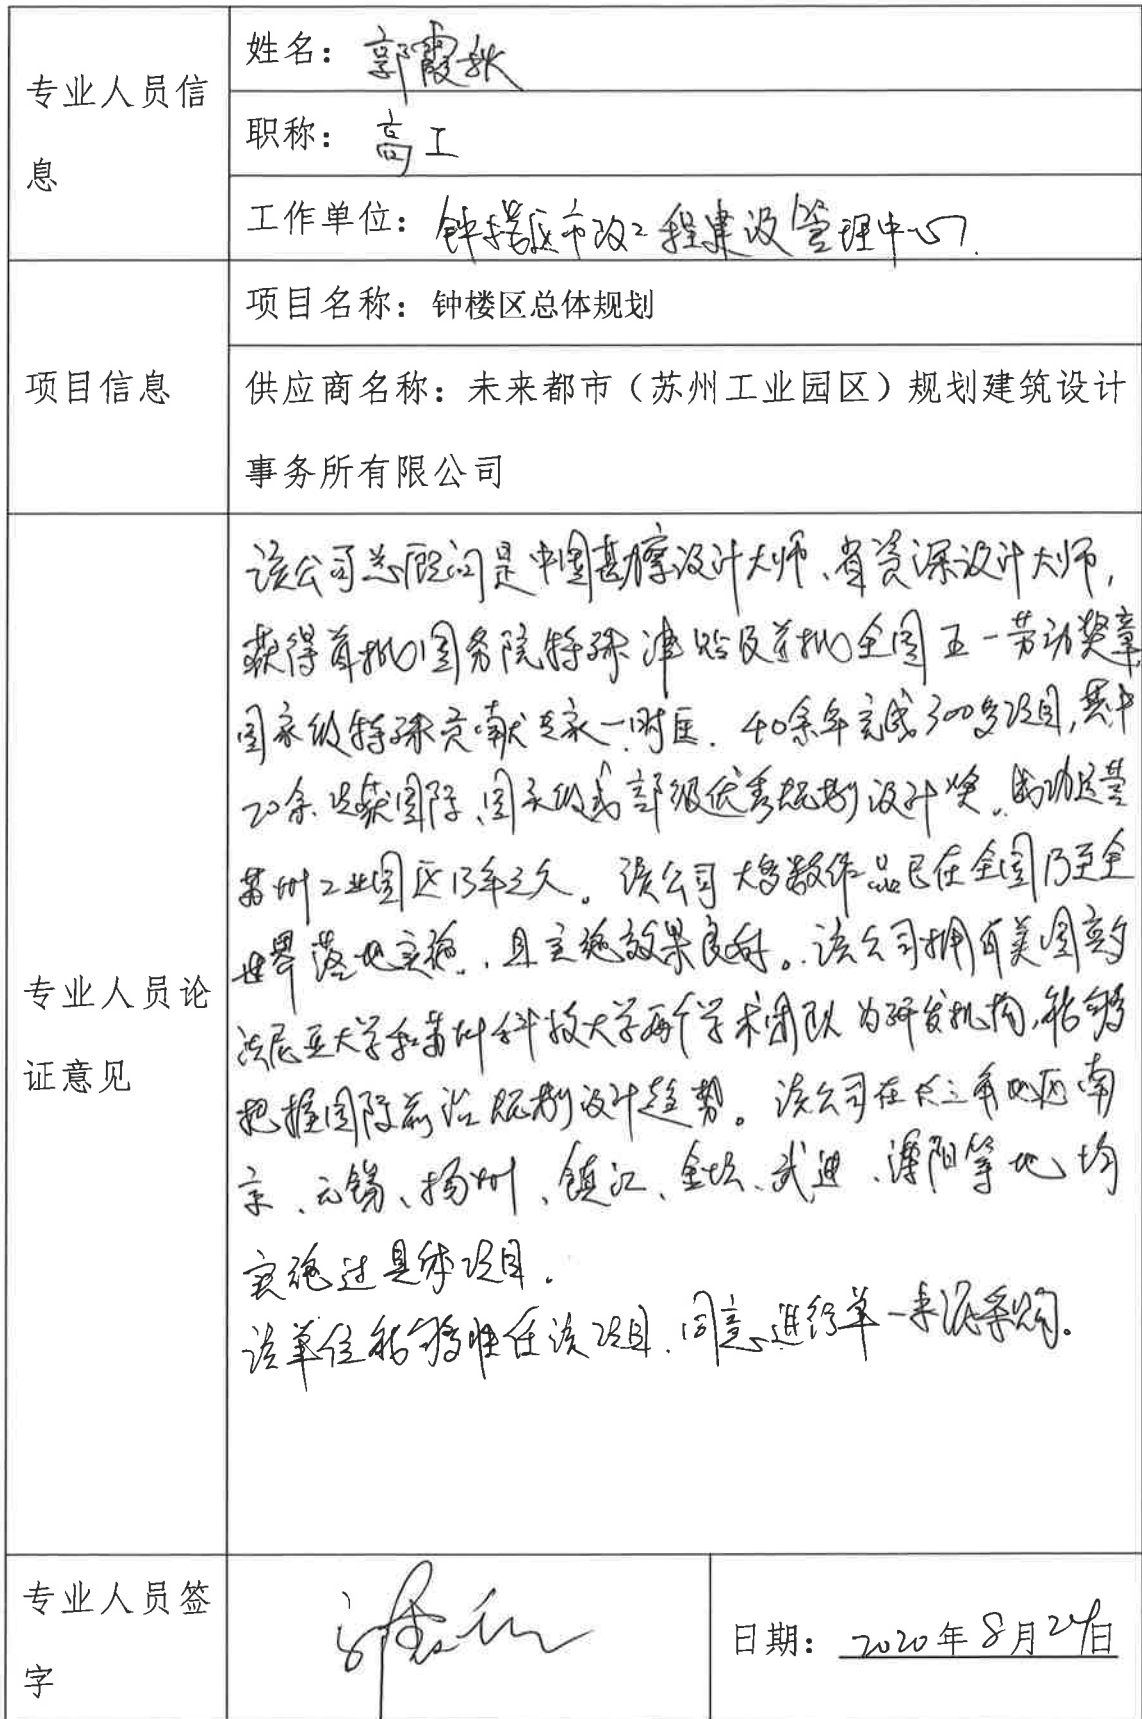 专业人员信
息
姓名：郭霞秋
职称：高工
工作单位：钟楼区市政工程建设管理中心
项目信息
项目名称：钟楼区总体规划
供应商名称：未来都市（苏州工业园区）规划建筑设计
事务所有限公司
专业人员论
证意见
该公司总顾问是中国勘察设计大师、省资深设计大师，
获得首批国务院特殊津贴及首批全国五一劳动奖章
国家级特殊贡献专家一时匡．40余年完成300多项目，其中
70余项获国际、国家级或部级优秀规划设计奖。成功运营
苏州工业园区13年之久。该公司大多数作品已在全国乃至全
世界落地实施，且实施效果良好。该公司拥有美国宾夕
法尼亚大学和苏州科技大学两个学术团队为研发机构，能够
把握国际前沿规划设计趋势。该公司在长三角地区南
京、无锡、扬州、镇江、金坛、武进、溧阳等地均
实施过具体项目．
该单位能够胜任该项目．同意进行单一来源采购。
专业人员签
字
日期：2020年8月24日